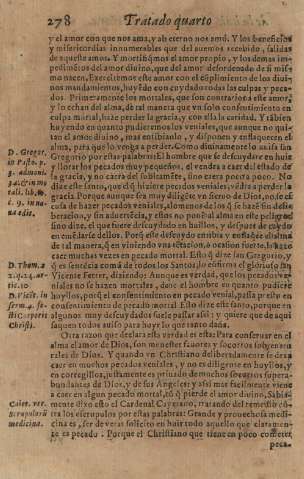 278 Tratado quarto
y el amor con que nos ama, y ab eterno nos amó. Y los beneficios
y misericordias innumerables que del auemos recebido, salidas
de aqueste amor. Y mortifiquemos el amor proprio, y los demas im-
pedimētos del amor diuino, que del amor desordenado de si mis-
mo nacen. Exercitemos este amor con el cūplimiento de los diui-
nos mandamientos, huyēdo con cuydado todas las culpas y peca-
dos. Primeramente los mortales, que son contrarios a este amor,
y lo echan del alma, de tal manera que vn solo consentimiento en
culpa mortal, haze perder la gracia, y con ella la caridad. Y tābien
huyendo en quanto pudieremos los veniales, que aunque no qui-
tan el amor diuino, mas entibianlo, y disponen y enflaquecen el
alma, para que lo venga a perder. Como diuinamente lo auisa san
Gregorio por estas palabras: El hombre que se descuydare en huir
y llorar los pecados muy pequeños, el vendra a caer del estado de
la gracia, y no caera del subitamēte, sino etera poco a poco. No
dize este santo, que el q̄ hiziere pecados veniales, vēdra a perder la
gracia. Porque aunque sea muy diligēte vn sieruo de Dios, no se es-
cusa de hazer pecados veniales, alomenos de los q̄ se hazē sin deli-
beracion, y sin aduertēcia, y estos no ponē al alma en este peligro:
sino dize, el que fuere descuydado en huillos, y despues de caydo
en enellos
de tal manera, q̄ en viniendo vna tētacion, o ocasion fuerte, lo haze
caer muchas vezes en pecado mortal. Esto q̄ dize san Gregorio, y
q̄ es sentēcia comū de todos los Santos, lo cōfirma el glorioso san
Vicente Ferrer, diziendo: Aunque es verdad, que los pecados ve-
niales no se hazen mortales, donc el hombre en quanto pudiere
huyllos, porq̄ el consentimiento en pecado venial, passa presto en
consentimiento de pecado mortal. Esto dize este santo, porque en
algunos muy descuydados suele passar assi: y quiere que de aqui
saquen todos auiso para huyr lo que tanto daña.
Otra razon que declara esta verdad es esta: Para conseruar en el
alma el amor de Dios, son menester fauores y socorros sobrenatu-
rales de Dios. Y quando vn Christiano deliberadamente se dexa
caer en muchos pecados veniales, y no es diligente en huyllos, y
en corregillos, justamente es priuado de muchos socorros superabundantes
de Dios, y de sus Angeles: y assi mas facilmente viene
a caer en algun pecado mortal, cō q̄ pierde el amor diuino. Sabia-
mente dixo esto el Cardenal Cayetano, tratando del remedio cō-
tra los escrupulos por estas palabras: Grande y prouechosa medi-
cina es, ser de veras solicito en huir todo aquello que claramen-
te es pecado. Porque el Christiano que tiene en poco cometer
peca-
D. Gregor.
in Pasto. p.
3. admoni.
D. Thom. 2
2. q. 24. ar-
tic. 10
D. Vicēt. in
serm. 4. fe-
sti Corporis
Christi.
Caiet. ver.
Scrupulorū
medicina.